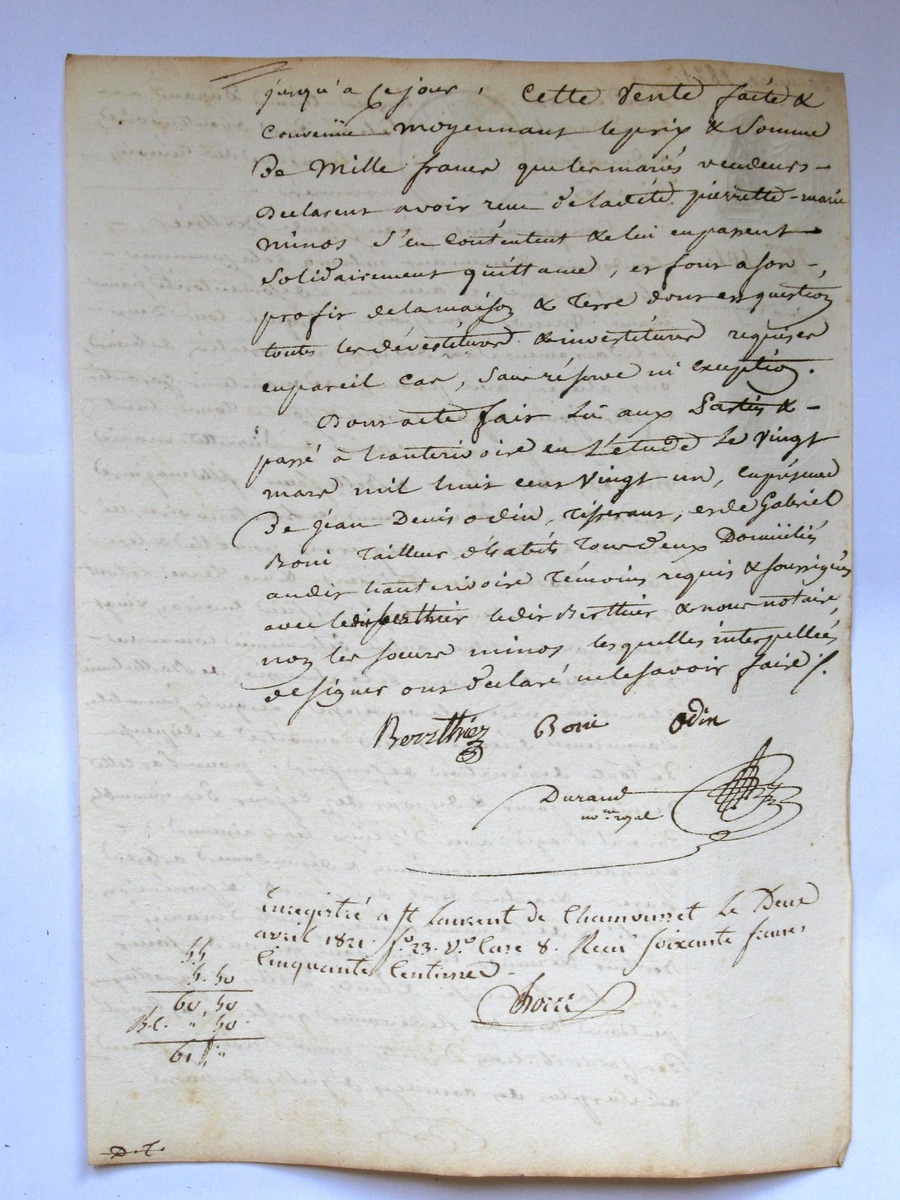 jusqu'à ce jour, Cette vente faite &
convenüe moyennant le prix & somme
De Mille francs que les mariés vendeurs –
Declarent avoir reçu de ladite pierrette-marie
minos s'en contentent & lui en passent
solidairement quittance, et font a son –
profit de la maison & Terre dont en question
toutes les dévestitures & investitures requises
en pareil cas, sans réserve ni exception.
Dont acte fait Lu aux Parties & –
passé à hauterivoire en L'étude Le vingt
mars mil huit cent vingt un, en présence
De jean Denis odin, Tisserant, et de Gabriel
Boni Tailleur d'habits Tous deux Domiciliés
audit hauterivoire Témoins requis & soussignés
avec ledit Berthier & nous notaire,
non les soeurs minos lesquelles interpellées
de signer ont déclaré ne le savoir faire /.
Berrthiez Boni Odin
Durand
no.re royal
Enregistré a St Laurent de Chamousset Le Deux
avril 1821. f.o 23. V.o Case 8. Reçu soixante francs
Cinquante Centimes.
55
5. 50
60, 50
B.C. " 50.
61 f "
D.T.